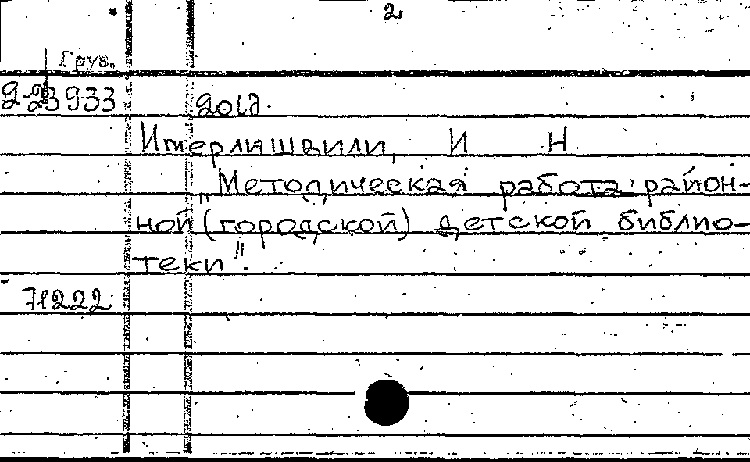 2
Груз.
2-23933
Имерлишвили, И Н
„Методическая работа район-
ной (городской) детской библио-
теки".
71222